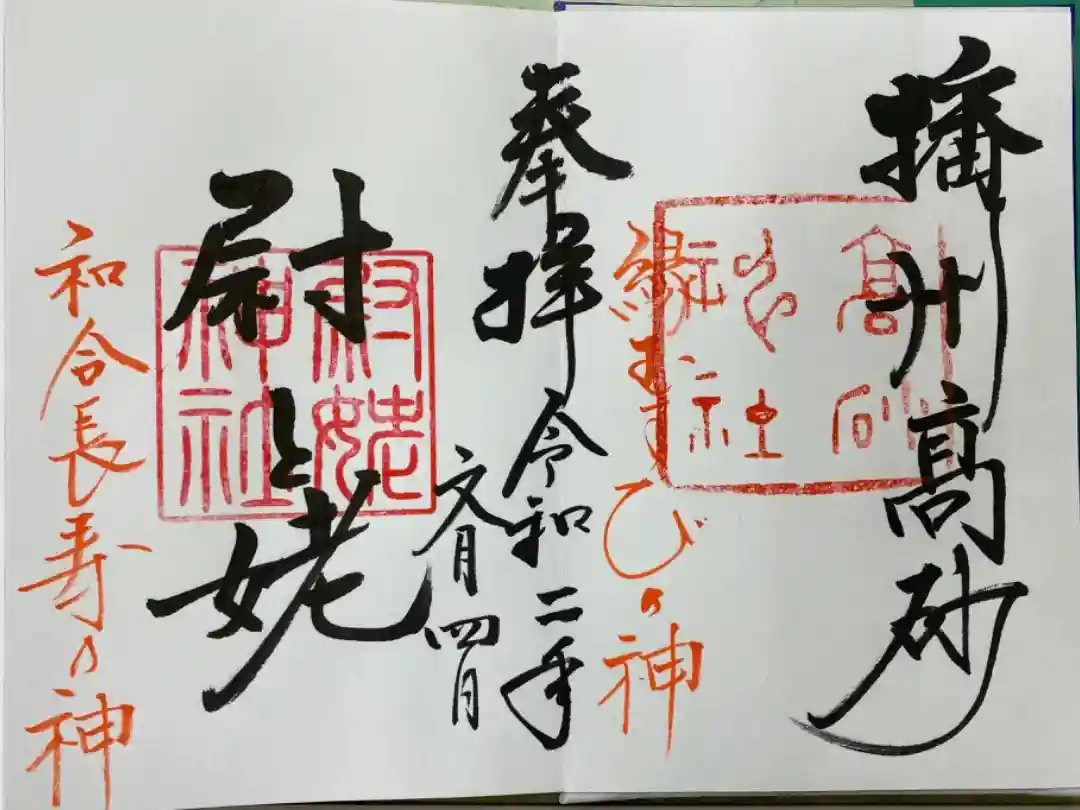 播州高砂
高砂神社
縁むすびの神
奉拝
令和二年
文月四日
尉と姥
尉姥神社
和合長寿の神